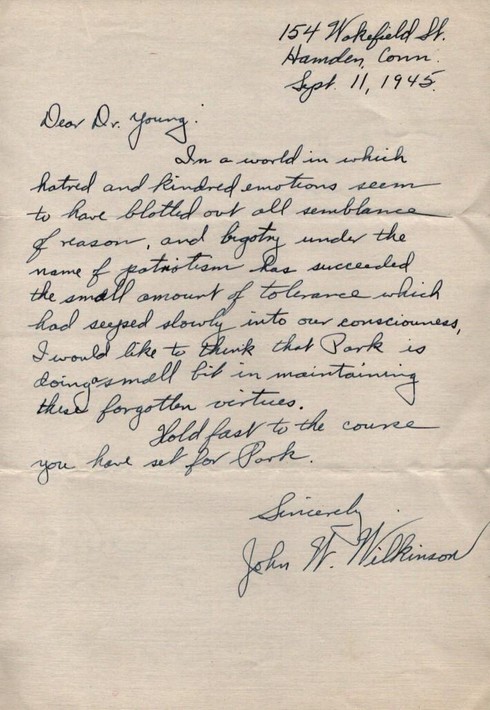 154 Wakefield St.
Hamden, Conn.
Sept. 11, 1945.
Dear Dr. Young:
In a world in which
hatred and kindred emotions seem
to have blotted out all semblance
of reason, and bigotry under the
name of patriotism has succeeded
the small amount of tolerance which
had seeped slowly into our consciouness,
I would like to think that Park is
doing a small bit in maintaining
these forgotten virtues.
Hold fast to the course
you have set for Park.
Sincerely,
John W. Wilkinson